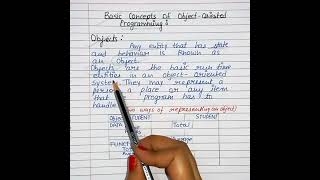 Basic Concepts of Object-Oriented
Programming:
Objects:
Any entity that has state
and behavior is known as
an Object.
Objects are the basic run time
entities in an object-oriented
system. They may represent a
person, a place or any item
that program has to
handle
two ways of representing an object
Object: STUDENT
STUDENT
DATA
Total